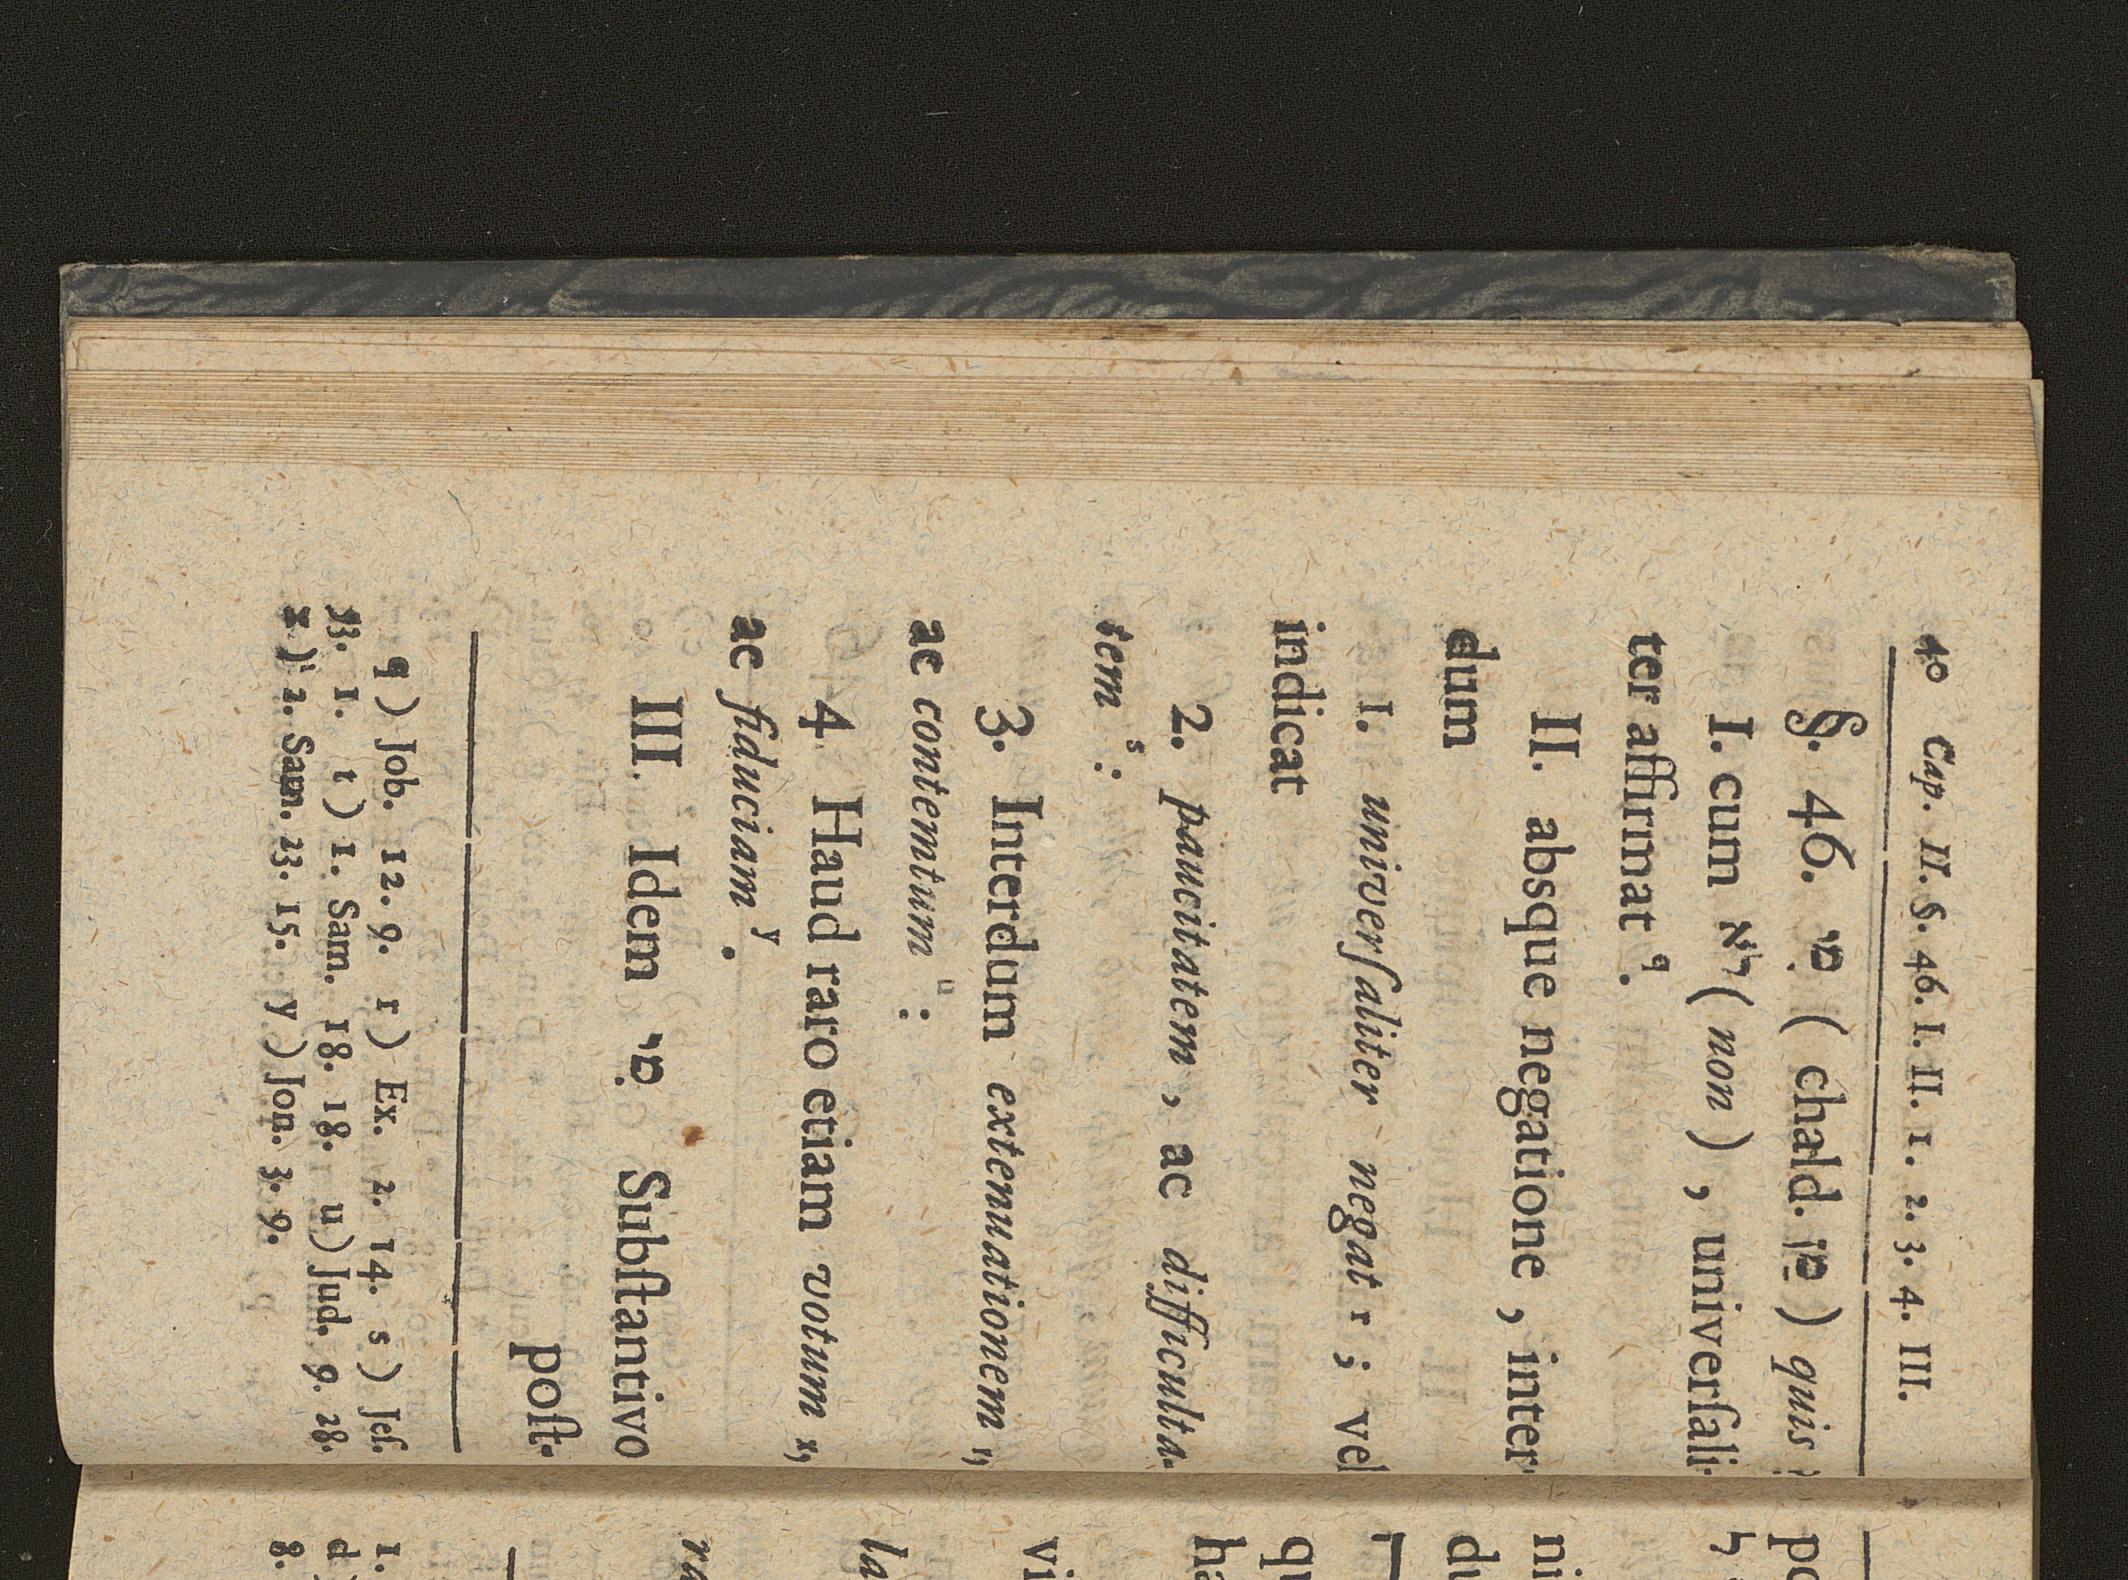 40 Cap. II. §. 46. I. II. 1. 2. 3. 4. III.
§. 46. מִי ( chald. מַן ) quis ?
I. cum לֹא ( non ) , univerſali-
ter affirmat q .
II. absque negatione , inter-
dum
1. univerſaliter negat r ; vel
indicat
2. paucitatem , ac difficulta-
tem s :
3. Interdum extenuationem t,
ac contemtum u :
4. Haud raro etiam votum x,
ac fiduciam y .
III. Idem מִי Subſtantivo
poſt-
q ) Job. 12. 9. r ) Ex. 2. 14. s ) Jeſ.
53. 1. t ) 1. Sam. 18. 18. u ) Jud. 9. 28.
x ) 2. Sam. 23. 15. y ) Jon. 3. 9.